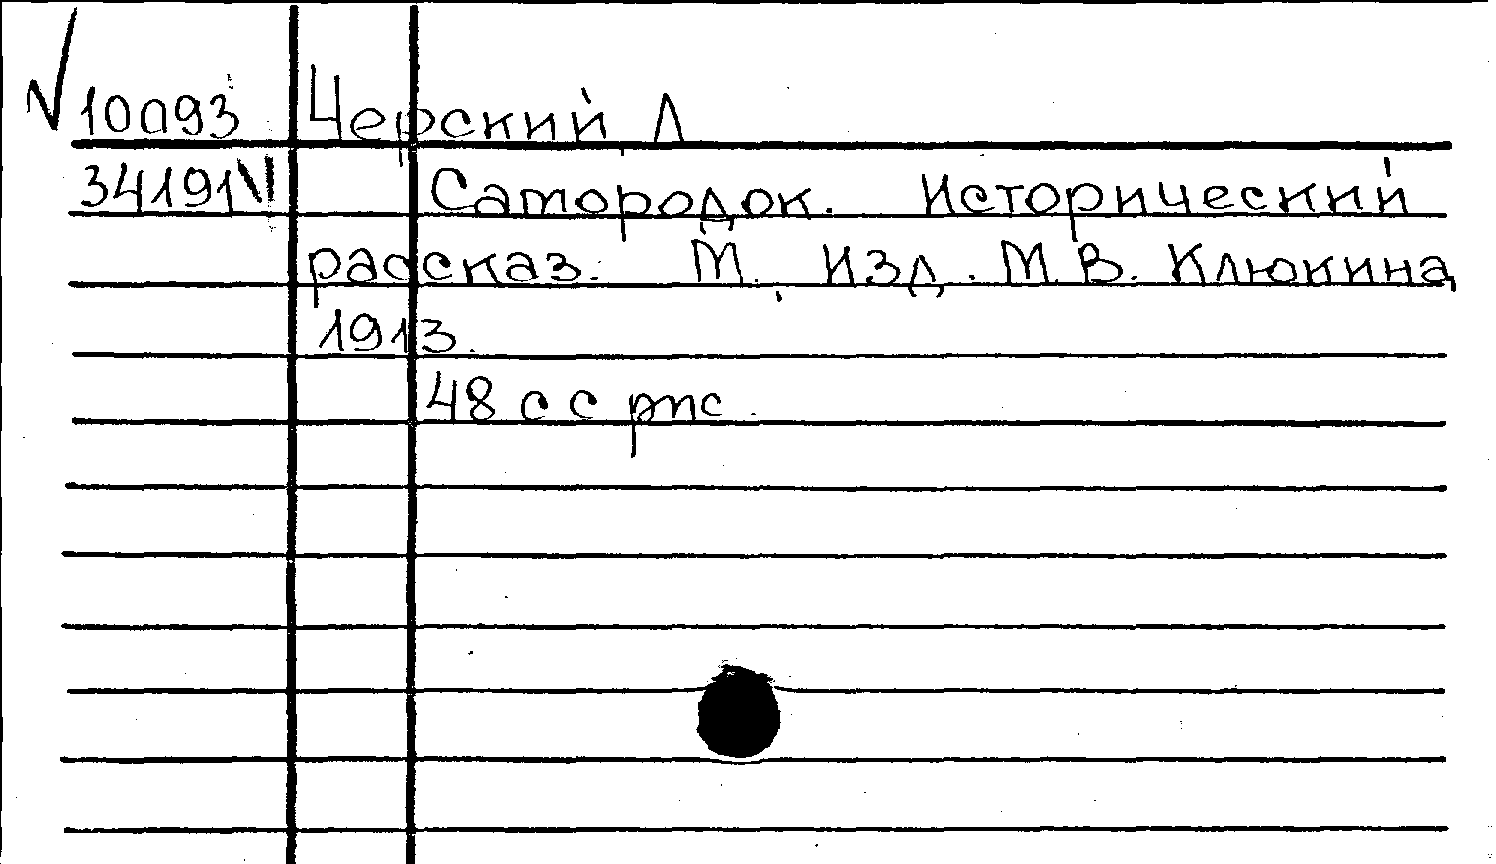 10093 Черский, Л
34191 VI Самородок. Исторический
рассказ. М., Изд. М. В. Клюкина,
1913.
48 с с рис.